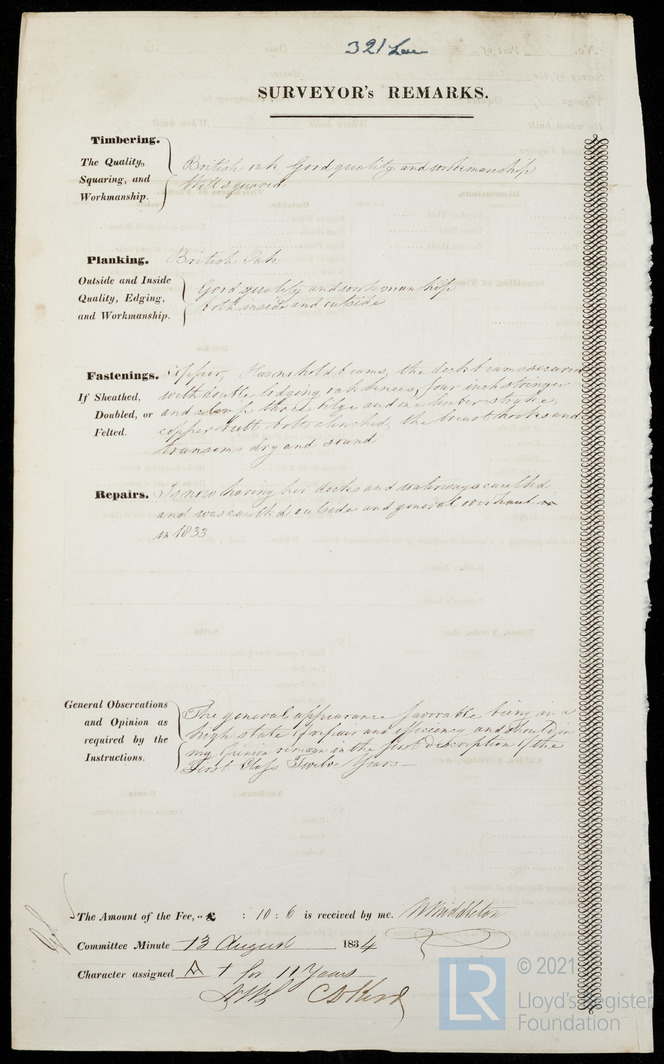 321
SURVEYOR's REMARKS.
Timbering.
The Quality,
Squaring, and
Workmanship.
British oak Good quality and workmanship
Well squared
Planking. British Oak
Outside and Inside
Quality, Edging,
and Workmanship.
Good quality and workmanship
both inside and outside
Fastenings. Copper, Has hold beams, the deck beams secured
If Sheathed,
Doubled, or
Felted.
with double lodging oak knees, four inch stringer
and clamp thick bilge and limber strake,
copper butt bolts clinched, the breast hooks and
transoms dry and sound
Repairs. Is now having her decks and waterways caulked
and was caulked outside and general overhaul
in 1833
General Observations
and Opinion as
required by the
Instructions.
The general appearance favorable being in a
high state of repair and efficiency and should in
my Opinion remain in the first description of the
First Class Twelve Years
The Amount of the Fee, -- £ : 10 : 6 is received by me. W Middleton
Committee Minute 13 August 1834
Character assigned A 1 for 11 Years
© 2021
LR
Lloyd's Register
Foundation